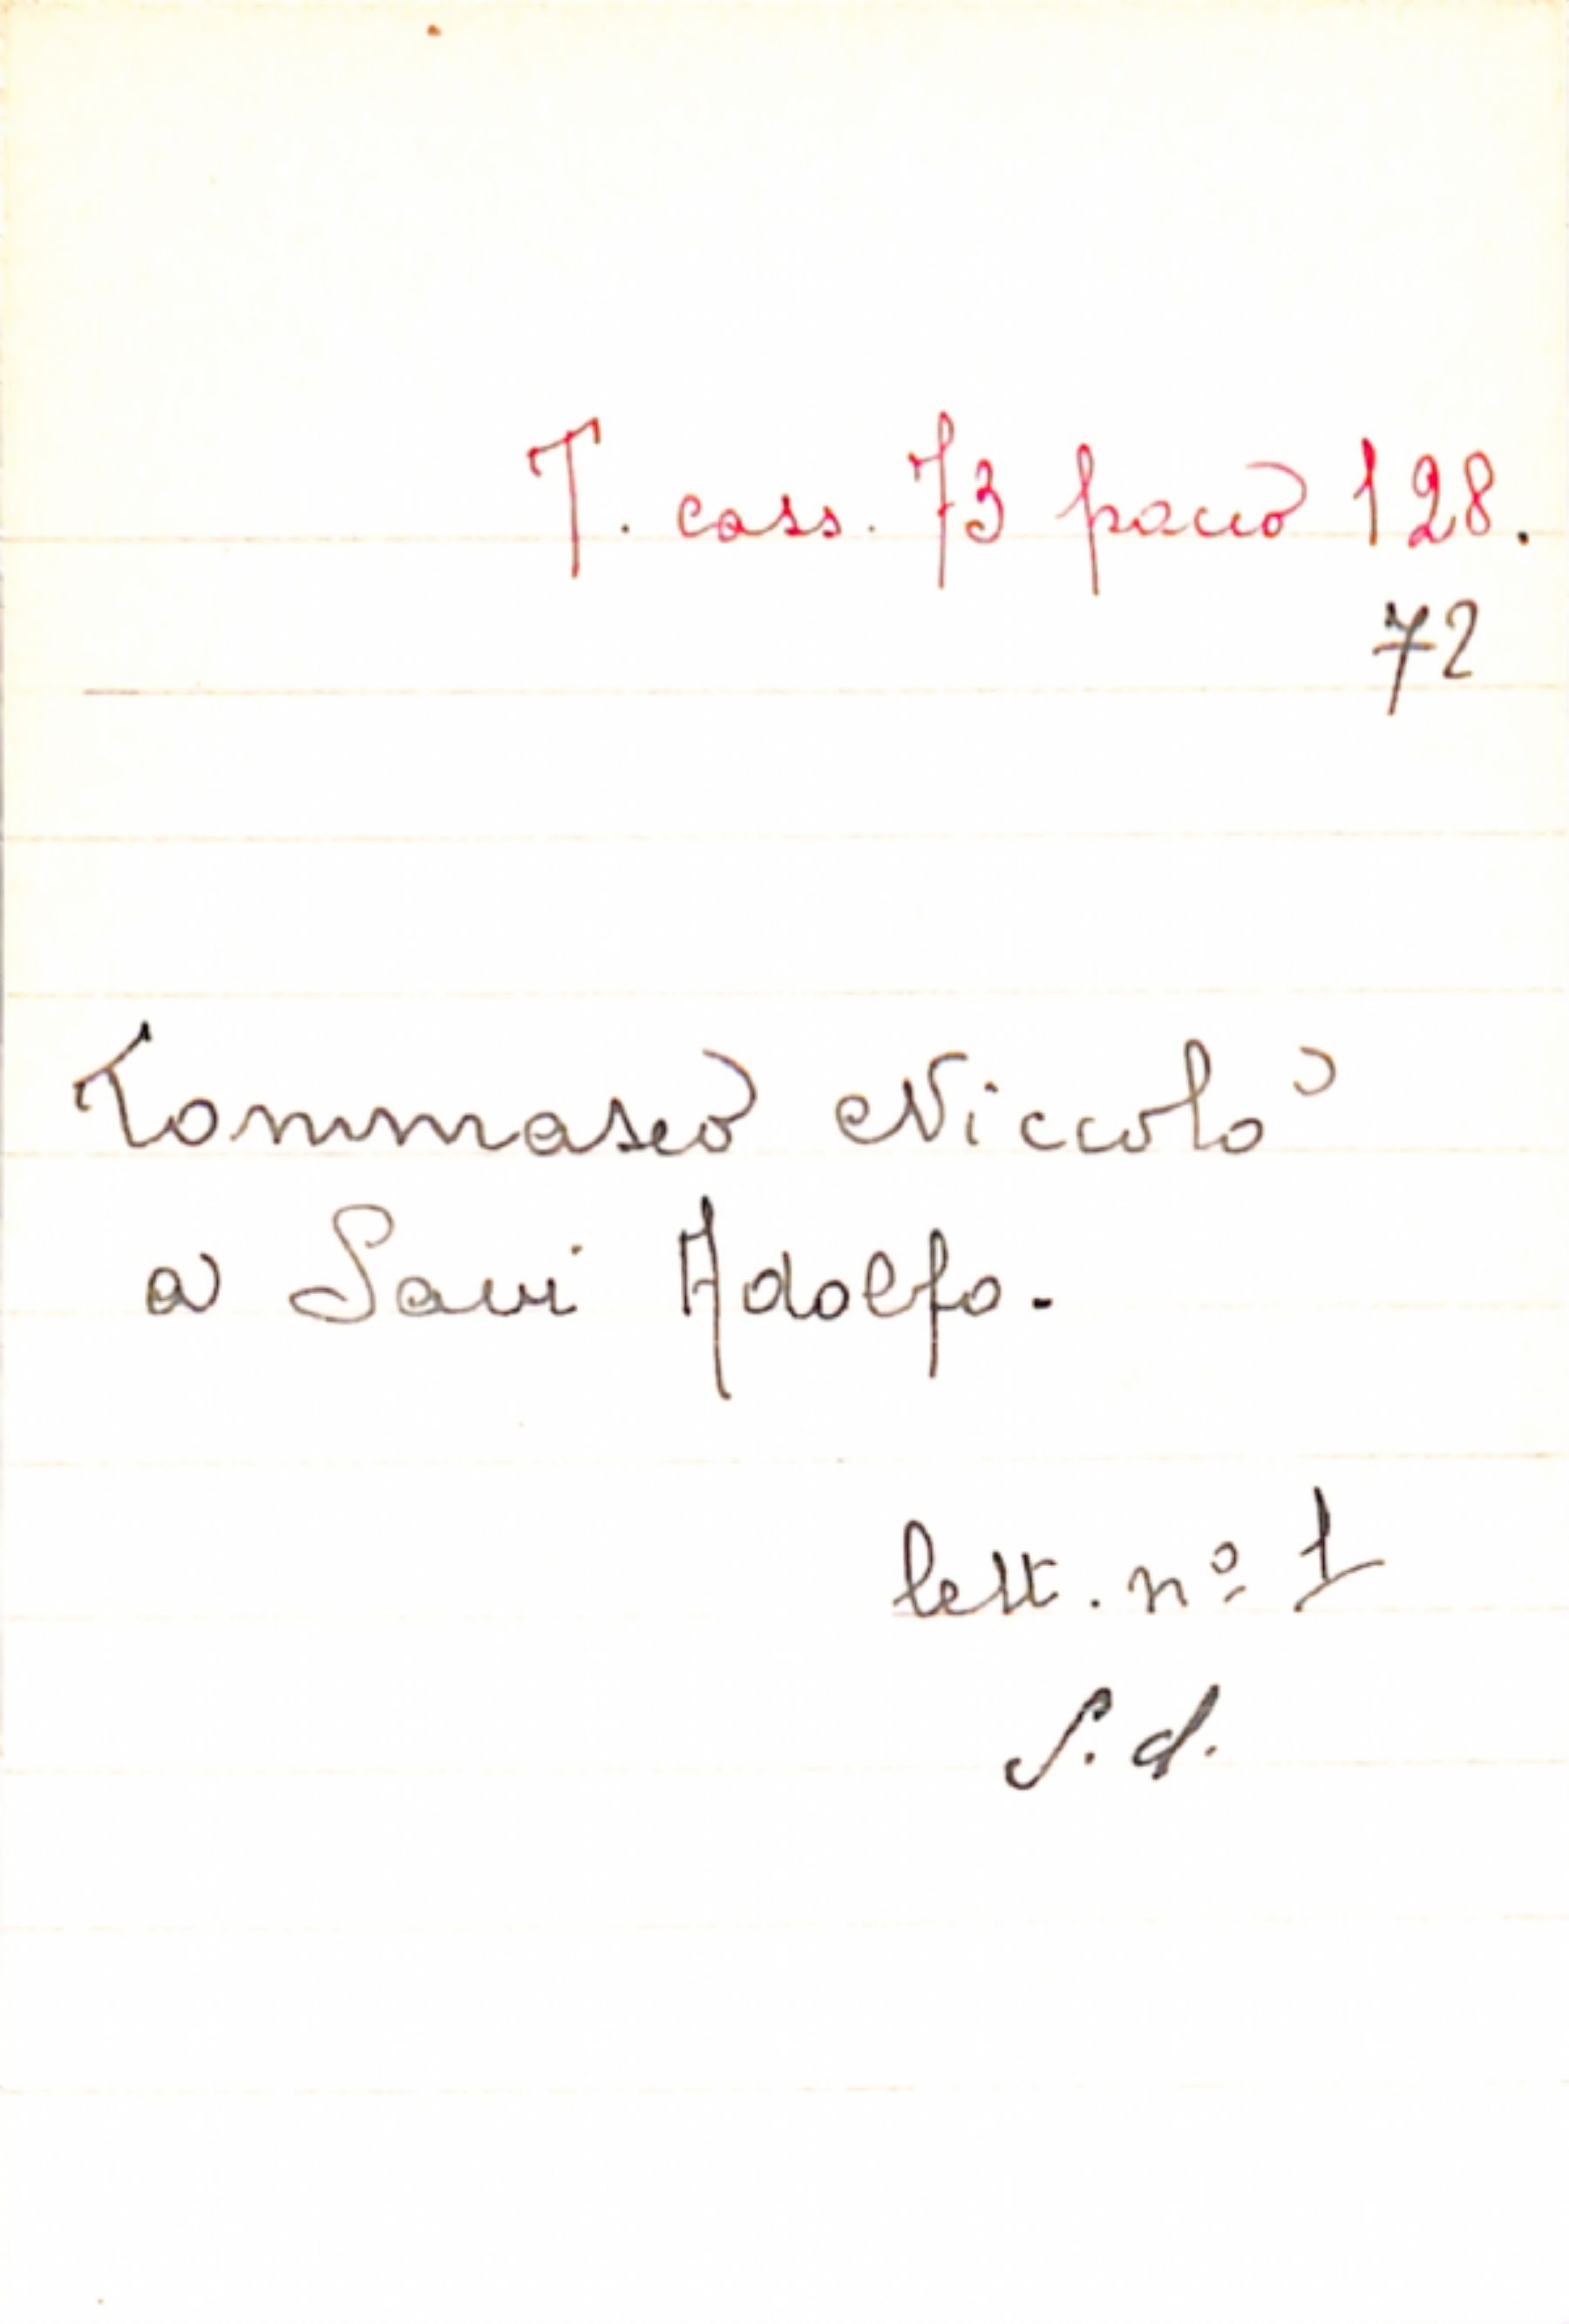 T. cass. 73 pacco 128.
72
Tommaseo Niccolò
a Savi Adolfo.
lett. nº 1
S. d.